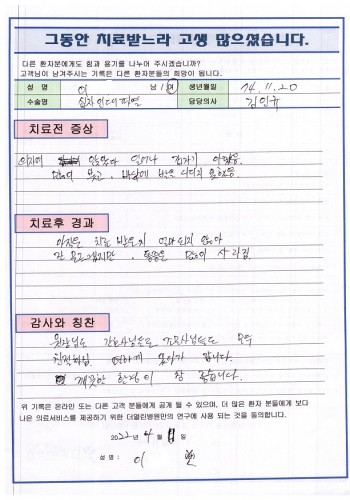 그동안 치료받느라 고생 많으셨습니다.
다른 환자분에게도 힘과 용기를 나누어 주시겠습니까?
고객님이 남겨주시는 기록은 다른 환자분들의 희망이 됩니다.
성 명 이 남 / 여 생년월일 74.11.20
수술명 십자인대파열 담당의사 김인규
치료전 증상
의자에 앉았다 일어나 갑자기 아팠음.
많이 붓고, 바닥에 발을 디디지 못했음.
치료후 경과
아직은 치료 받은지 얼마되지 않아
잔 붓고 있지만, 통증은 많이 사라짐.
감사와 칭찬
원장님도 간호사님들도 모두
친절하심. 편하게 있다가 갑니다.
깨끗한 환경이 참 좋습니다.
위 기록은 온라인 또는 다른 고객 분들에게 공개 될 수 있으며, 더 많은 환자 분들에게 보다
나은 의료서비스를 제공하기 위한 더열린병원만의 연구에 사용 되는 것을 동의합니다.
2022년 4월 일
성명 : 이